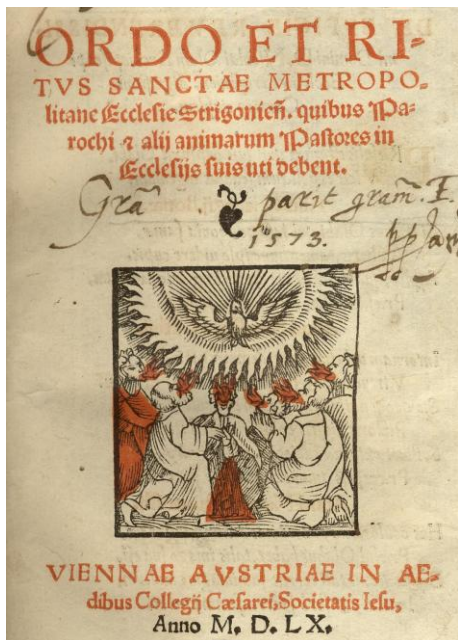 ORDO ET RI-
TVS SANCTAE METROPO-
litane Ecclesie Strigonieñ. quibus Pa-
rochi ⁊ alij animarum Pastores in
Ecclesijs suis uti debent.
Grã parit gram̃. I.
1573.
VIENNAE AVSTRIAE IN AE-
dibus Collegij Cæsarei, Societatis Iesu,
Anno M. D. LX.